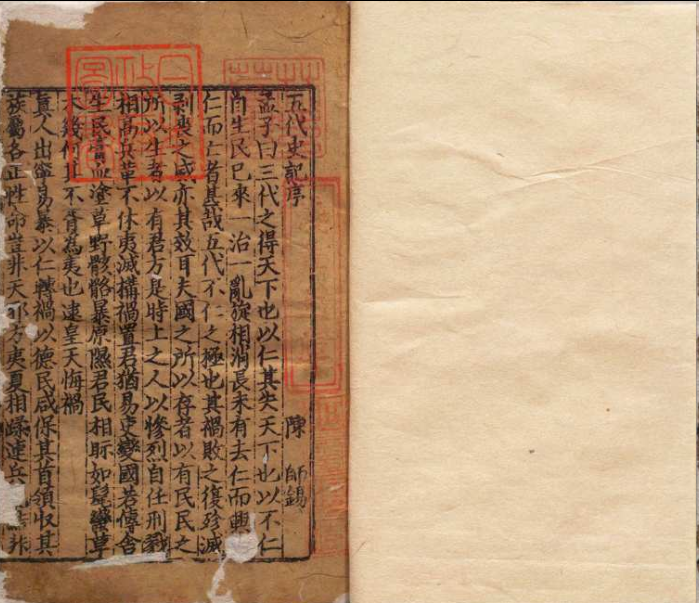 五代史記序
陳師錫
孟子曰三代之得天下也以仁其失天下也以不仁
自生民已來一治一亂旋相消長未有去仁而興
仁而亡者甚哉五代不仁之極也其禍敗之復殄滅
剥喪之威亦其效耳夫國之所以存者以有民民之
所以生者以有君方是時上之人以慘烈自任刑戮
相高兵革不休夷滅構禍置君猶易吏變國若傳舍
生民膏血塗草野骸骼暴原隰君民相眎如髦蠻草
木幾何其不胥為夷也逮皇天悔禍
眞人出寧易暴以仁轉禍以德民咸保其首領収其
族屬各正性命豈非天耶方夷夏相蹂連兵